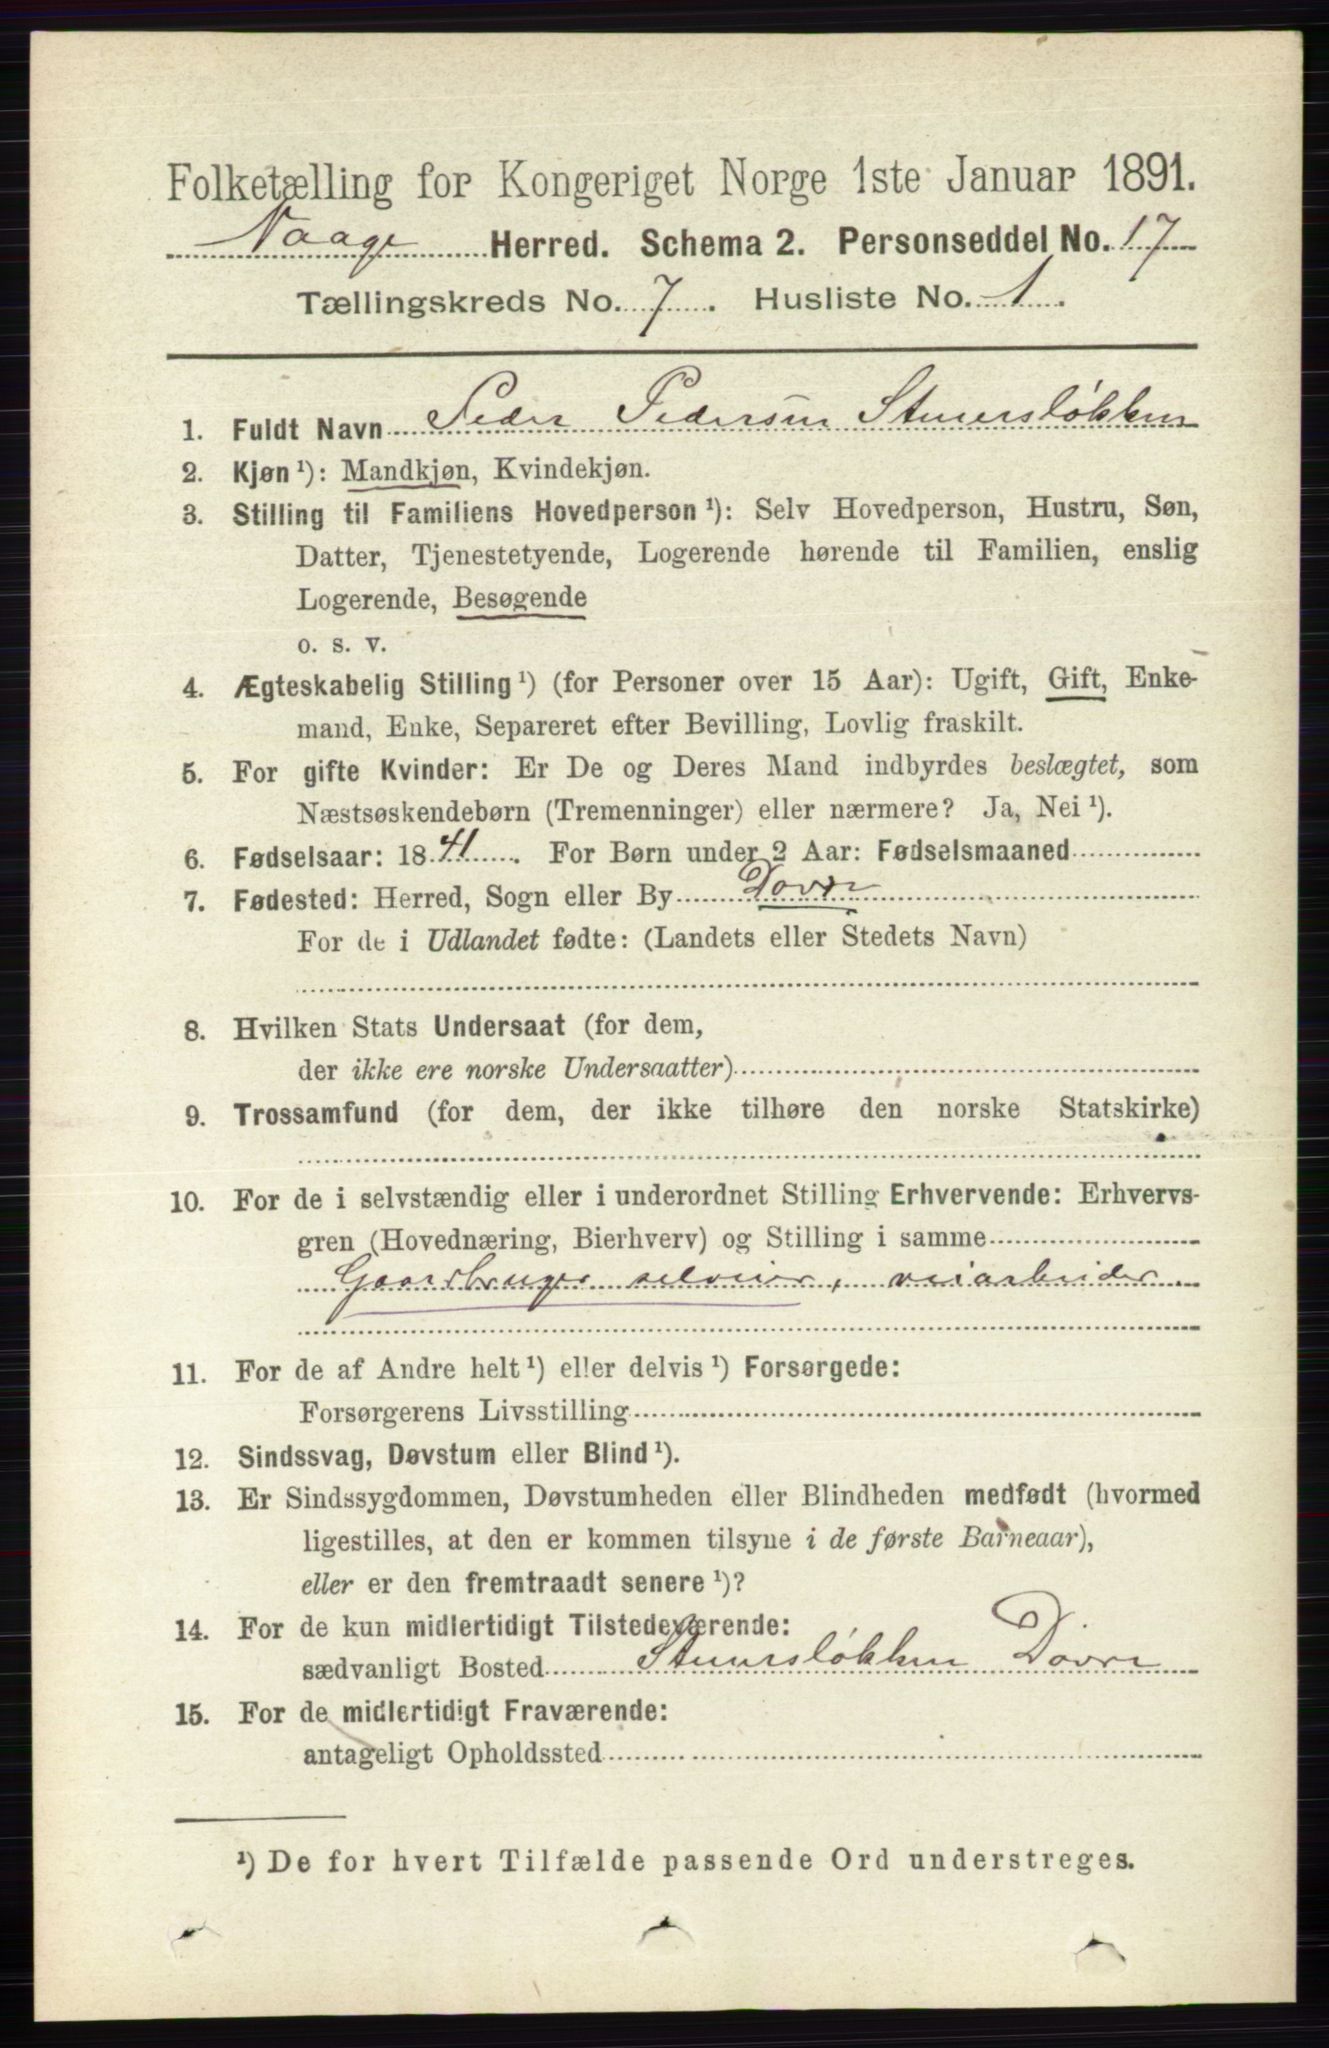 Folketælling for Kongeriget Norge 1ste Januar 1891.
Vaage Herred. Schema 2. Personseddel No. 17
Tællingskreds No. 7. Husliste No. 1.
1. Fuldt Navn Peder Pedersen Stuersløkken
2. Kjøn ¹): Mandkjøn, Kvindekjøn.
3. Stilling til Familiens Hovedperson ¹): Selv Hovedperson, Hustru, Søn,
Datter, Tjenestetyende, Logerende hørende til Familien, enslig
Logerende, Besøgende
o. s. v.
4. Ægteskabelig Stilling ¹) (for Personer over 15 Aar): Ugift, Gift, Enke-
mand, Enke, Separeret efter Bevilling, Lovlig fraskilt.
5. For gifte Kvinder: Er De og Deres Mand indbyrdes beslægtet, som
Næstsøskendebørn (Tremenninger) eller nærmere? Ja, Nei ¹).
6. Fødselsaar: 1841. For Børn under 2 Aar: Fødselsmaaned
7. Fødested: Herred, Sogn eller By Dovre
For de i Udlandet fødte: (Landets eller Stedets Navn)
8. Hvilken Stats Undersaat (for dem,
der ikke ere norske Undersaatter)
9. Trossamfund (for dem, der ikke tilhøre den norske Statskirke)
10. For de i selvstændig eller i underordnet Stilling Erhvervende: Erhvervs-
gren (Hovednæring, Bierhverv) og Stilling i samme
Gaardbruger selveier, veiarbeider.
11. For de af Andre helt ¹) eller delvis ¹) Forsørgede:
Forsørgerens Livsstilling
12. Sindssvag, Døvstum eller Blind ¹).
13. Er Sindssygdommen, Døvstumheden eller Blindheden medfødt (hvormed
ligestilles, at den er kommen tilsyne i de første Barneaar),
eller er den fremtraadt senere ¹)?
14. For de kun midlertidigt Tilstedeværende:
sædvanligt Bosted Stuersløkken Dovre
15. For de midlertidigt Fraværende:
antageligt Opholdssted
¹) De for hvert Tilfælde passende Ord understreges.